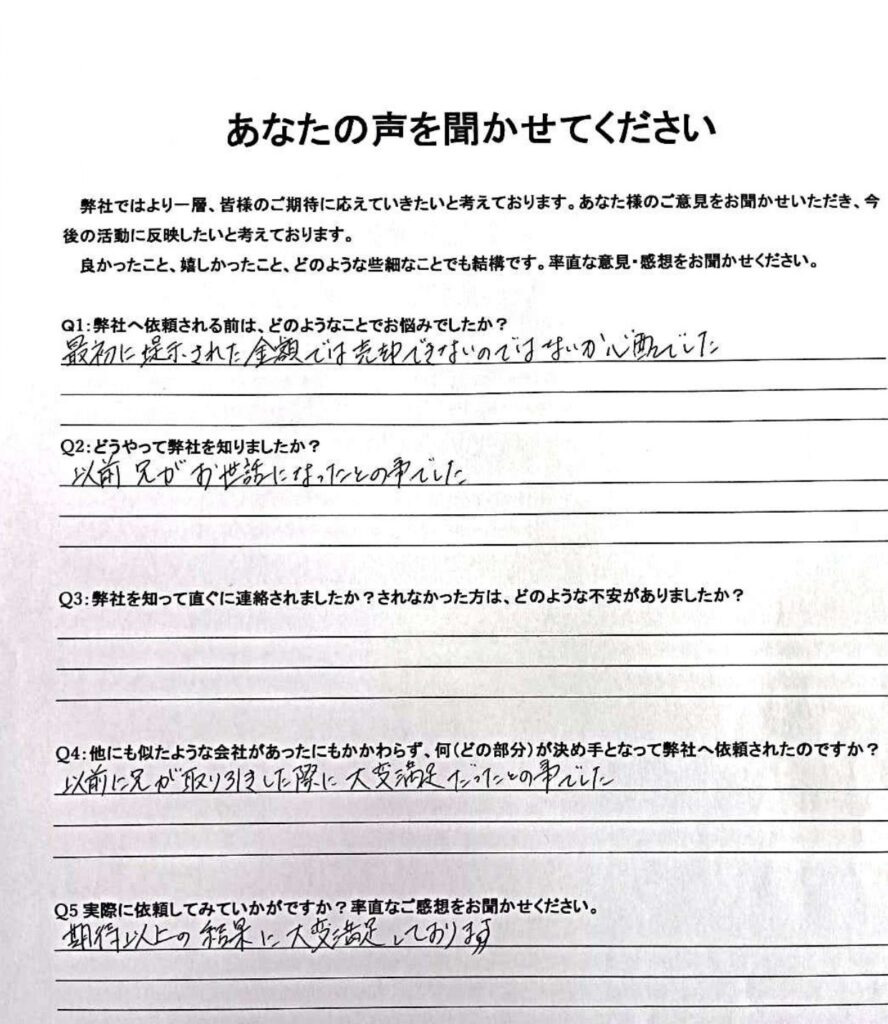 あなたの声を聞かせてください
弊社ではより一層、皆様のご期待に応えていきたいと考えております。あなた様のご意見をお聞かせいただき、今
後の活動に反映したいと考えております。
良かったこと、嬉しかったこと、どのような些細なことでも結構です。率直な意見・感想をお聞かせください。
Q1:弊社へ依頼される前は、どのようなことでお悩みでしたか?
最初に提示された金額では売却できないのではないか心配でした
Q2:どうやって弊社を知りましたか?
以前兄がお世話になったとの事でした
Q3:弊社を知って直ぐに連絡されましたか?されなかった方は、どのような不安がありましたか?
Q4:他にも似たような会社があったにもかかわらず、何(どの部分)が決め手となって弊社へ依頼されたのですか?
以前に兄が取り引きした際に大変満足だったとの事でした
Q5 実際に依頼してみていかがですか?率直なご感想をお聞かせください。
期待以上の結果に大変満足しております